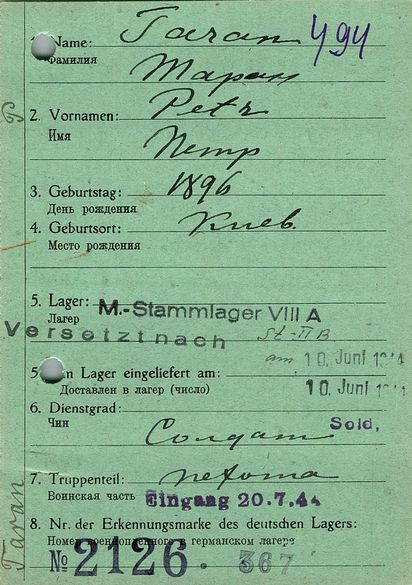 1. Name: Taran 494
Фамилия Таран
2. Vornamen: Petr
Имя Петр
3. Geburtstag: 1896
День рождения
4. Geburtsort: Киев.
Место рождения
5. Lager: M.-Stammlager VIII A
Лагер
Versetzt nach St-II B
am 10. Juni
5 In Lager eingeliefert am:
Доставлен в лагер (число) 10. Juni
6. Dienstgrad: Sold.
Чин Солдат
7. Truppenteil: пехота
Воинская часть Eingang 20.7.44
8. Nr. der Erkennungsmarke des deutschen Lagers:
Номер военнопленного в германском лагере
№ 2126. 367
P
Taran